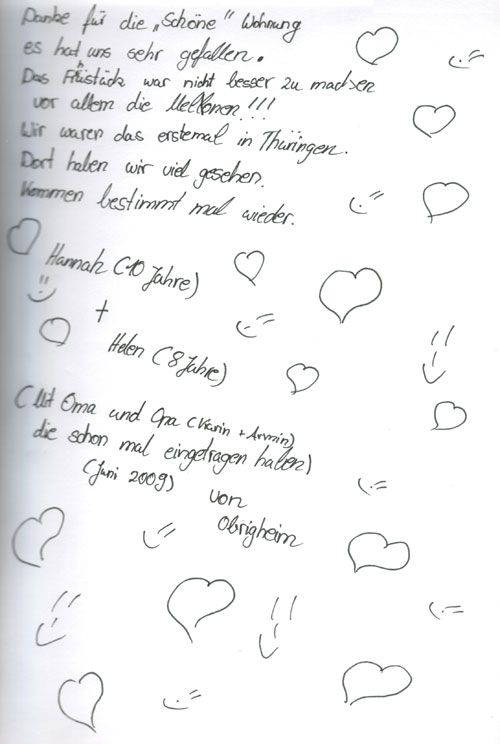 Danke für die „Schöne" Wohnung
es hat uns sehr gefallen.
Das Frühstück war nicht besser zu machen
vor allem die Mellonen!!!
Wir waren das erstemal in Thüringen.
Dort haben wir viel gesehen.
Kommen bestimmt mal wieder.
Hannah (10 Jahre)
+
Helen (8 Jahre)
(Mit Oma und Opa (Karin + Armin)
die schon mal eingetragen haben)
(Juni 2009)
von
Obrigheim